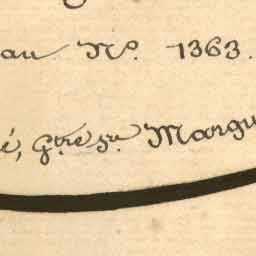 au No. 1363.
é, Gtre sr. Margu